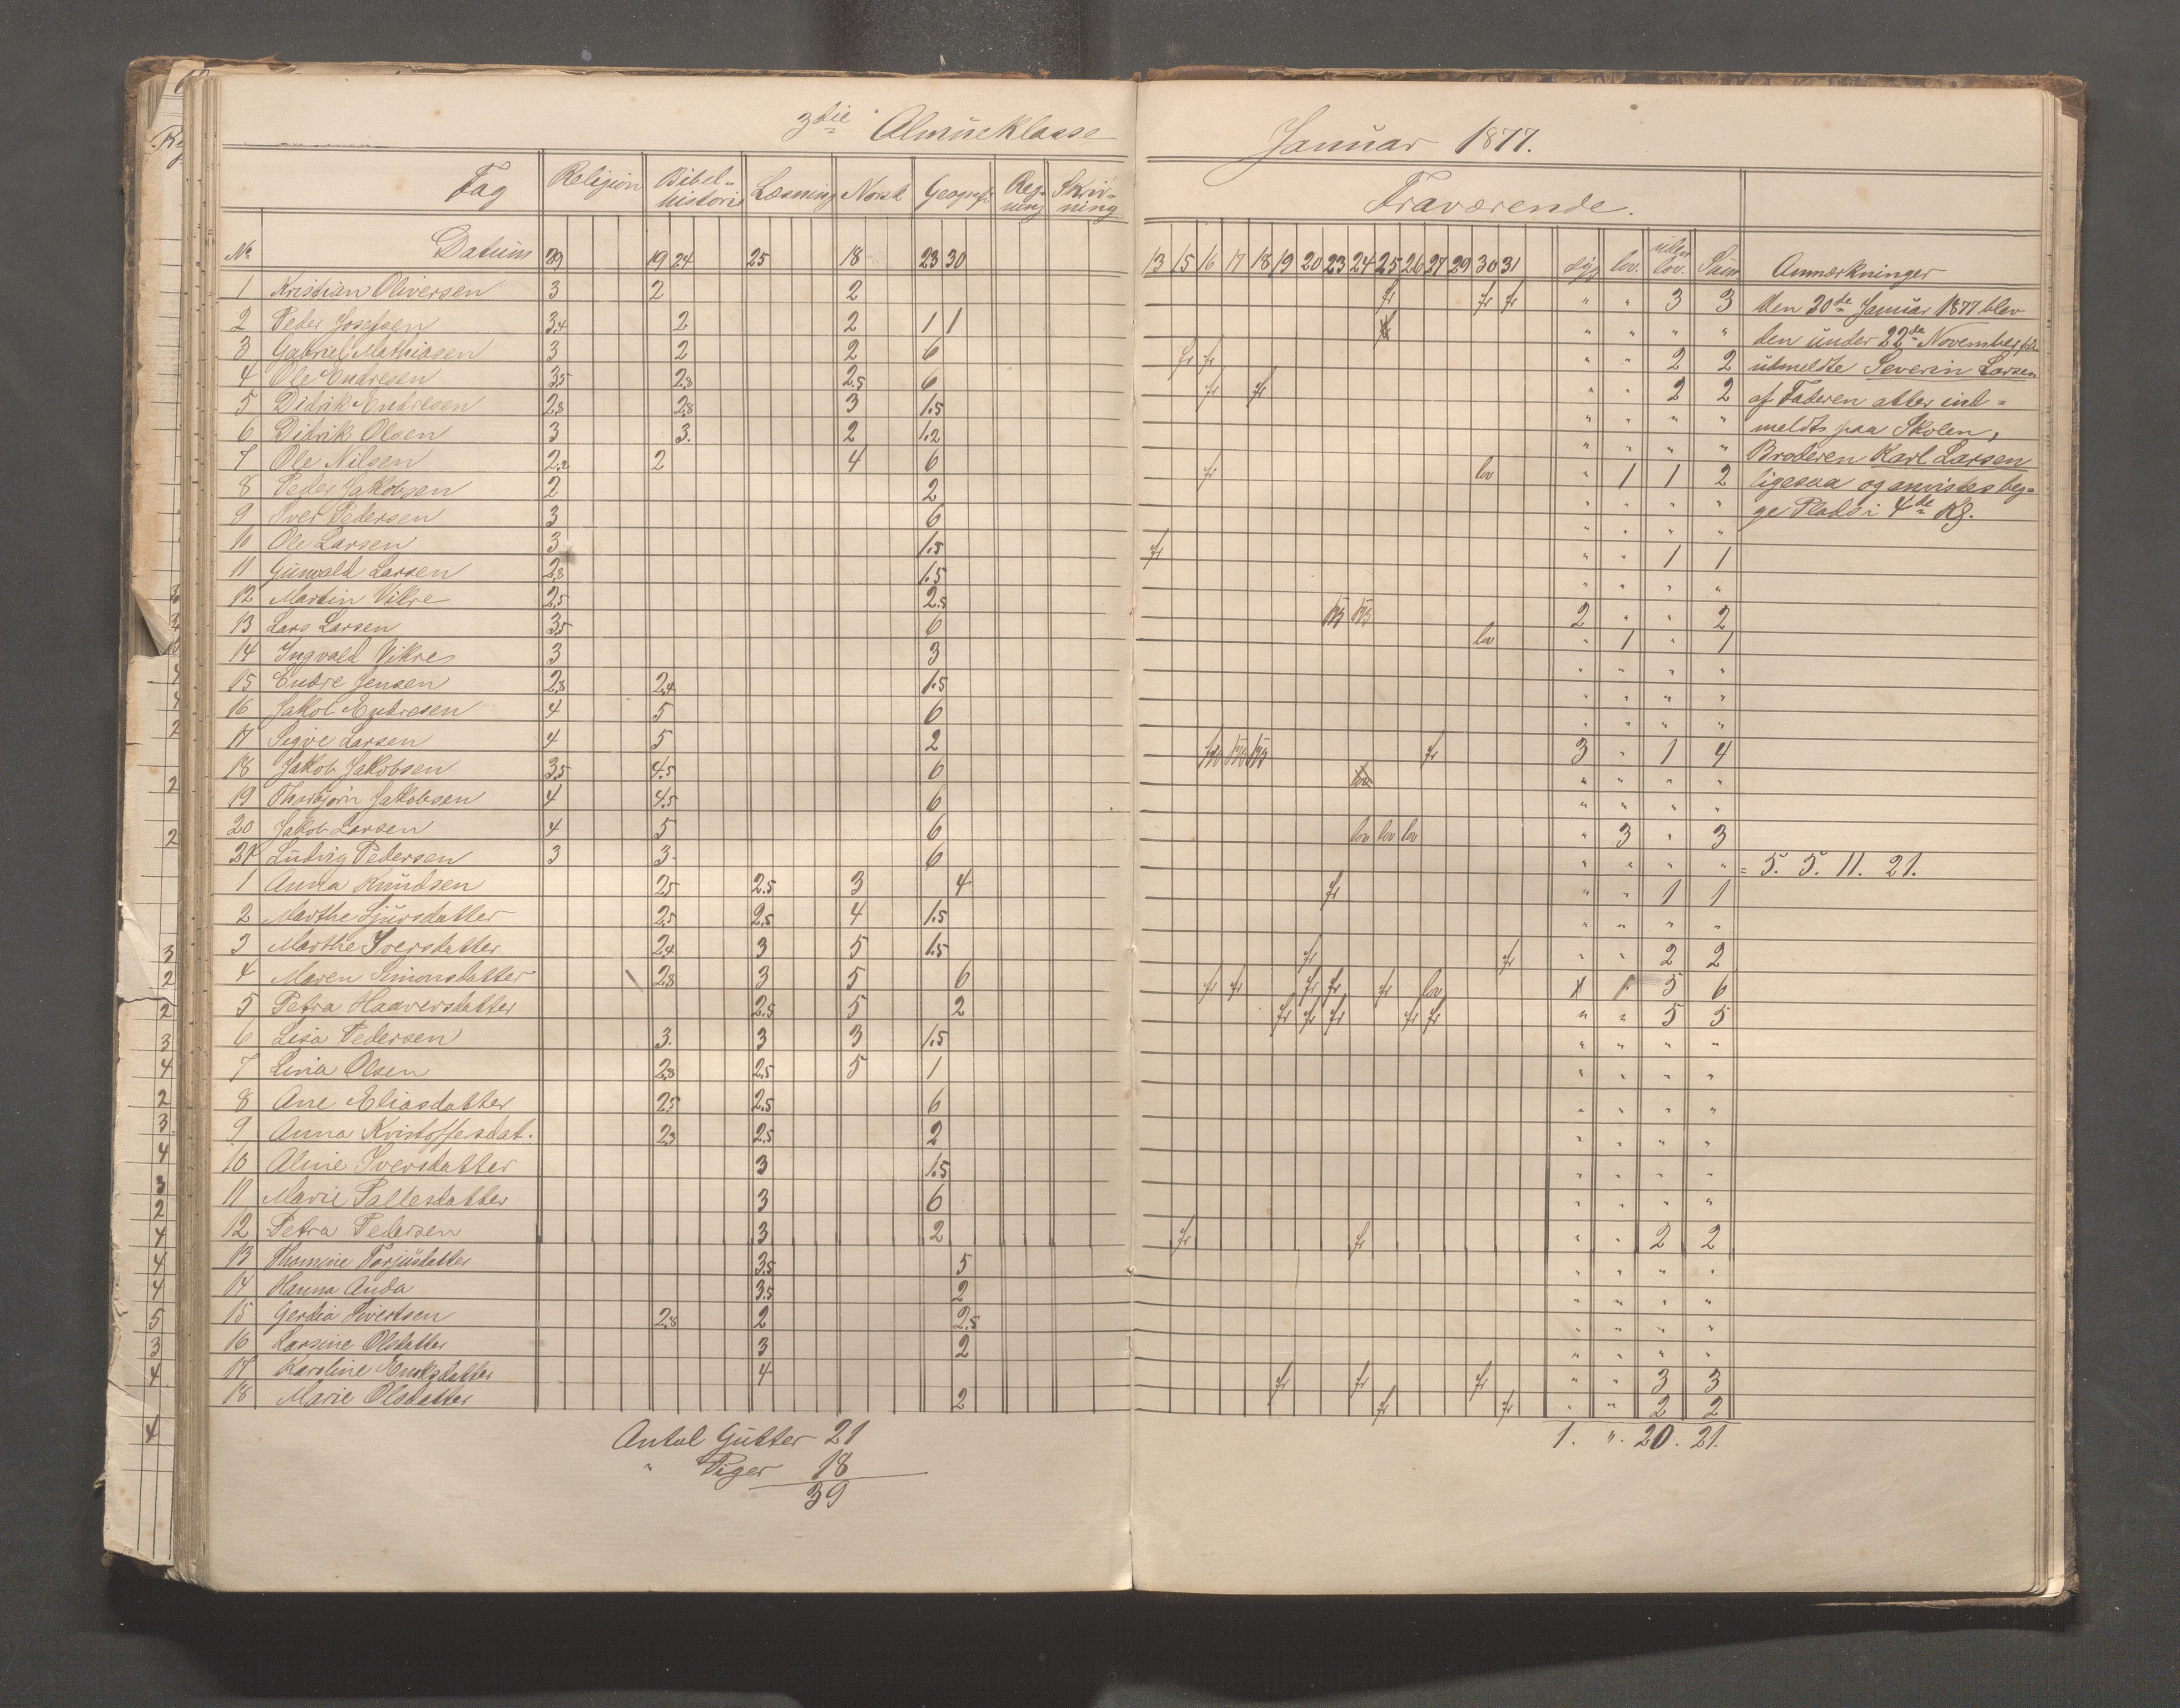 3die Almueklasse
Fag Religion Bibel- historie Læsning Norsk Geografi Reg- ning Skriv- ning
No. Datum 29 19 24 25 18 23 30
1 Kristian Oliversen 3 2 2
2 Peder Josefsen 3.4 2 2 1 1
3 Gabriel Mathiasen 3 2 2 6
4 Ole Endresen 3.5 2.8 2.5 6
5 Didrik Endresen 2.8 2.8 3 1.5
6 Didrik Olsen 3 3. 2 1.2
7 Ole Nilsen 2.2 2 4 6
8 Peder Jakobsen 2 2
9 Iver Pedersen 3 6
10 Ole Larsen 3 1.5
11 Gunvald Larsen 2.8 1.5
12 Martin Vikre 2.5 2.5
13 Lars Larsen 3.5 6
14 Ingvald Vikre 3 3
15 Endre Jensen 2.8 2.4 1.5
16 Jakob Endresen 4 5 6
17 Sigve Larsen 4 5 2
18 Jakob Jakobsen 3.5 4.5 6
19 Thorbjørn Jakobsen 4 4.5 6
20 Jakob Larsen 4 5 6
21 Ludvig Pedersen 3 3. 6
1 Anna Knudsen 2.5 2.5 3 4
2 Marthe Sjursdatter 2.5 2.5 4 1.5
3 Marthe Iversdatter 2.4 3 5 1.5
4 Maren Simonsdatter 2.8 3 5 6
5 Petra Haaversdatter 2.5 5 2
6 Lisa Pedersen 3. 3 3 1.5
7 Lina Olsen 2.8 2.5 5 1
8 Ane Eliasdatter 2.5 2.5 6
9 Anna Kristoffersdat. 2.3 2.5 2
10 Aline Iversdatter 3 1.5
11 Marie Pallesdatter 3 6
12 Petra Pedersen 3 2
13 Thomine Torjusdatter 3.5 5
14 Hanna Anda 3.5 2
15 Gertia Sivertsen 2.8 2 2.5
16 Larsine Olsdatter 3 2
17 Karoline 4
18 Marie Olsdatter 2
Antal Gutter 21
" Piger 18
39
Januar 1877.
Fraværende.
13 15 16 17 18 19 20 23 24 25 26 27 29 30 31 syg lov. uden lov. Sum Anmærkninger
fr fr fr " " 3 3
" " " "
fr fr " " 2 2
fr fr " " 2 2
" " " "
" " " "
fr lov " 1 1 2
" " " "
" " " "
fr " " 1 1
" " " "
2 " " 2
lov " 1 " 1
" " " "
" " " "
" " " "
fr 3 " 1 4
" " " "
" " " "
lov lov lov " 3 " 3
" " " " = 5. 5. 11. 21.
fr " " 1 1
" " " "
fr fr " " 2 2
fr fr fr fr fr lov 5 6
fr fr fr fr fr " " 5 5
" " " "
" " " "
" " " "
" " " "
" " " "
" " " "
fr fr " " 2 2
" " " "
" " " "
" " " "
" " " "
fr fr fr " " 3 3
fr fr " " 2 2
1. ". 20. 21.
den 30de Januar 1877 blev
den under 22de November
udmeldte Severin Larsen
af Faderen atter ind-
meldt paa Skolen,
Broderen Karl Larsen
ligesaa og anvistes beg-
ge Plads i 4de Kl.